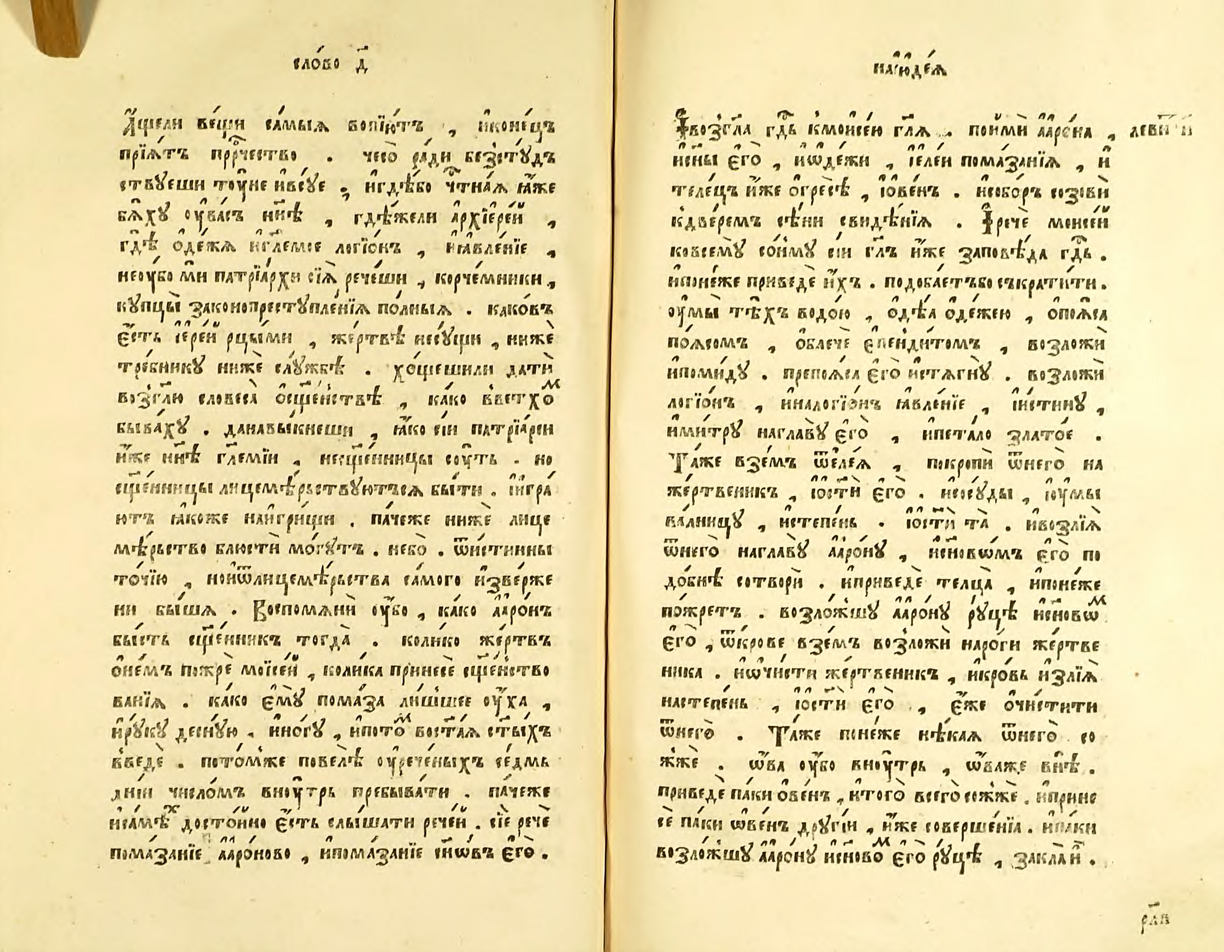 сло́во д҃
А҆́щели ве́щи са́мыѧ вопїю́тъ , и҆коне́цъ
прїѧ́тъ прⷪ҇рчество . чесо̀ ра́ди безстꙋ́дъ
ствꙋеши тоу́не и҆все́уе , и҆гдѣ́бо чⷭ҇тнаѧ ꙗ҆́же
бѧ́хꙋ оу҆ва́съ нн҃ѣ , гдѣ́жели а҆рхїере́й ,
гдѣ̀ ѻ҆де́жѧ и҆гл҃емое логїо́нъ , и҆ꙗ҆вле́нїе ,
неоу҆́бо мѝ патрїа́рхи сїѧ̀ рече́ши , корче́мники ,
кꙋпцы̀ законопрестꙋпле́нїѧ по́лныѧ . како́въ
є҆́сть і҆ере́й рцы́ми , же́ртвѣ несꙋ́щи , нижѐ
тре́бникꙋ нижѐ слꙋ́жбѣ . хо́щешили да́ти
возгл҃ю словеса̀ ѻ҆сщ҃е́нствѣ , ка́ко вве́тхоⷨ
быва́хꙋ . данавы́кнеши , ꙗ҆́ко сі́и патрїа́рси
и҆́же нн҃ѣ гл҃емїи , несщ҃е́нницы сꙋ́ть . но
сщ҃е́нницы лицемѣ́рьствꙋютъсѧ бы́ти . и҆и҆гра́
ютъ ꙗ҆́коже наи҆гри́щи . па́чеже нижѐ лице
мѣ́рьство блюстѝ мо́гꙋтъ . не́бо . ѿи́стинны
то́чїю , нои҆ѿлицемѣ́рьства са́мого и҆зве́рже
ни бы́шѧ . Воспомѧнѝ оу҆́бо , ка́ко а҆аро́нъ
бы́сть сщ҃е́нникъ тогда̀ . коли́ко же́ртвъ
ѻ҆не́мъ пожрѐ моѷсе́й , коли́ка принесѐ сщ҃е́нство
ва́нїѧ . ка́ко є҆мꙋ̀ пома́за ли́шшее оу҆́ха ,
и҆рꙋ́кꙋ деснꙋ́ю . и҆но́гꙋ , и҆пото́ⷨ востаѧ ст҃ы́хъ
введѐ . пото́мже повелѣ̀ оу҆рече́ныхъ се́дмь
дні́и число́мъ внꙋ́трь пребыва́ти . па́чеже
и҆самѣ́ⷯ досто́йно є҆́сть слы́шати рече́й . сїѐ речѐ
пома́занїе а҆аро́ново , и҆пома́занїе сн҃о́въ є҆гѡ̀ .
наі҆ꙋде́ѧ
И҆возгл҃а гдⷭ҇ь кмоѷсе́ю гл҃ѧ . поимѝ а҆аро́на , леви́и и
и҆сн҃ы є҆гѡ̀ , и҆ѡ҆де́жи , и҆є҆ле́и пома́занїѧ , и҆
теле́цъ и҆́же ѻ҆гресѣ̀ , і҆ѻ҆ве́нъ . и҆собо́ръ созовѝ
кдве́ремъ сѣ́ни свидѣ́нїѧ . И҆речѐ моисе́й
ковсемꙋ̀ со́нмꙋ се́и гл҃ъ и҆́же заповѣ́да гдⷭ҇ь .
и҆поне́же приведѐ и҆́хъ . подоба́етъбо съкрати́ти .
оу҆мы̀ тѣ́хъ водо́ю , ѻ҆дѣ́ѧ ѻ҆де́жею , ѻ҆поѧ́са
по́ѧсомъ , ѻ҆блечѐ є҆пенди́томъ , возложѝ
и҆поми́дꙋ . препоѧ́са є҆гѡ̀ и҆стѧгнꙋ̀ . возложѝ
логїо́нъ , и҆налогїо́нъ ꙗ҆вле́нїе , і҆и́стинꙋ ,
и҆ми́трꙋ наглавꙋ̀ є҆гѡ̀ , и҆пе́тало злато́е .
Та́же взе́мъ ѿє҆ле́ѧ , покропѝ ѿнегѡ̀ на
же́ртвенникъ , і҆ѡ҆стѝ є҆гѡ̀ . и҆сосꙋ́ды , і҆оу҆мы̀
ва́лницꙋ , и҆степе́нь . і҆ѡ҆стѝ та̀ . и҆возлїѧ̀
ѿнегѡ̀ наглавꙋ̀ а҆аро́нꙋ , и҆сн҃ово́мъ є҆гѡ̀ по
до́бнѣ сотворѝ . и҆приведѐ телца̀ , и҆поне́же
пожре́тъ . возло́жшꙋ а҆аро́нꙋ рꙋ́цѣ и҆сн҃ово́ⷨ
є҆гѡ̀ , ѿкро́ве взе́мъ возложѝ наро́ги же́ртве
ника . и҆ѡ҆чи́сти же́ртвенникъ , и҆кро́вь и҆злїѧ̀
настепе́нь , і҆ѡ҆стѝ є҆гѡ̀ , є҆́же ѻ҆чи́стити
ѿнегѡ̀ . Та́же поне́же нѣ́каѧ ѿнегѡ̀ со
жжѐ . ѻ҆́ва оу҆́бо внꙋ́трь , ѻ҆́важе внѣ̀ .
приведѐ па́ки ѻ҆ве́нъ , и҆того̀ всего̀ сожжѐ . и҆прине
сѐ па́ки ѡ҆ве́нъ дрꙋгі́и , и҆́же соверше́нїѧ . и҆па́ки
возло́жшꙋ а҆аро́нꙋ и҆сн҃ово́ⷨ є҆гѡ̀ рꙋ́цѣ , закла̀ и҆̀ .